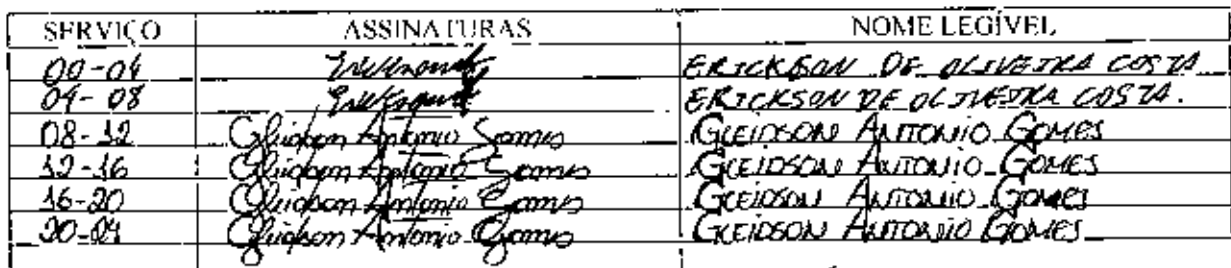 SERVIÇO ASSINATURAS NOME LEGÍVEL
00-04 ERICKSON DE OLIVEIRA COSTA
04-08 ERICKSON DE OLIVEIRA COSTA.
08-12 Gleidson Antonio Gomes GLEIDSON ANTONIO GOMES
12-16 Gleidson Antonio Gomes GLEIDSON ANTONIO GOMES
16-20 Gleidson Antonio Gomes GLEIDSON ANTONIO GOMES
20-24 Gleidson Antonio Gomes GLEIDSON ANTONIO GOMES